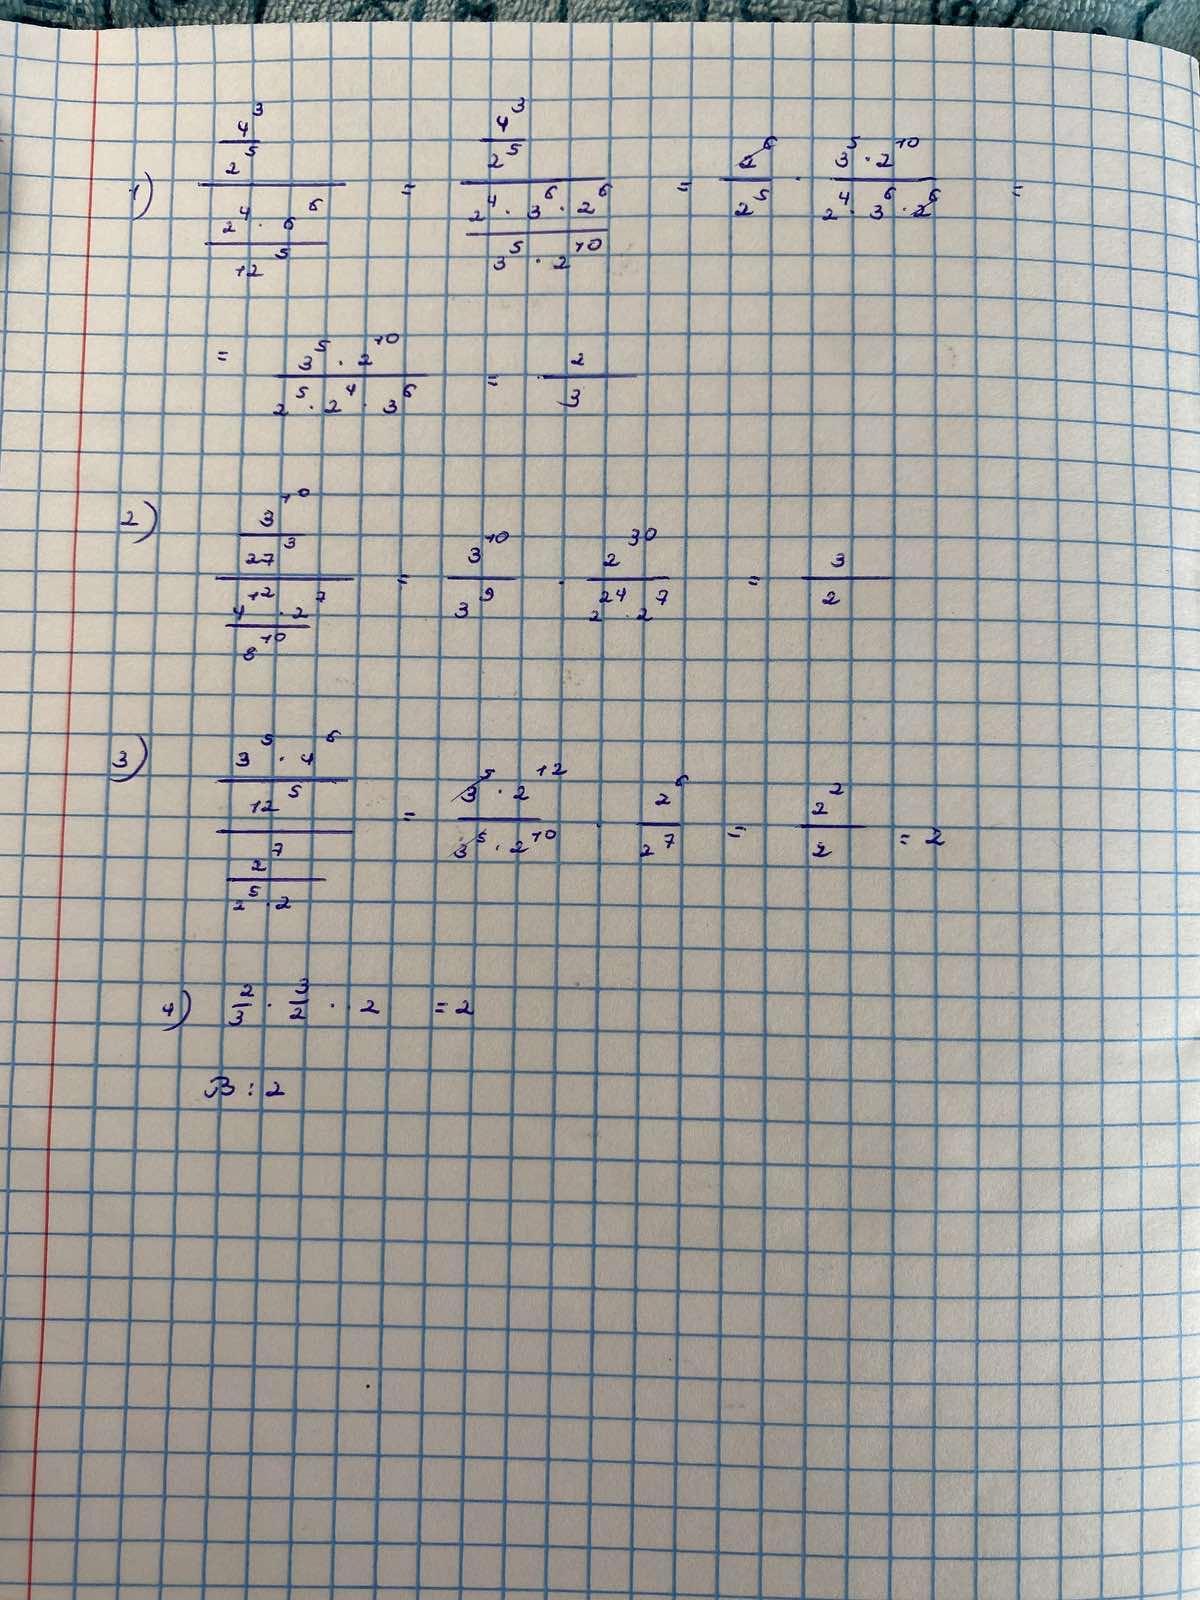 1) (4^3/2^5)/((2^4 · 6^6)/12^5) = (4^3/2^5)/((2^4 · 3^6 · 2^6)/(3^5 · 2^10)) = 2^6/2^5 · (3^5 · 2^10)/(2^4 · 3^6 · 2^6) =
= (3^5 · 2^10)/(2^5 · 2^4 · 3^6) = 2/3
2) (3^10/27^3)/((4^12 · 2^7)/8^10) = 3^10/3^9 · 2^30/(2^24 · 2^7) = 3/2
3) ((3^5 · 4^6)/12^5)/(2^7/(2^5 · 2)) = (3^5 · 2^12)/(3^5 · 2^10) · 2^6/2^7 = 2^2/2 = 2
4) 2/3 · 3/2 · · 2 = 2
В : 2